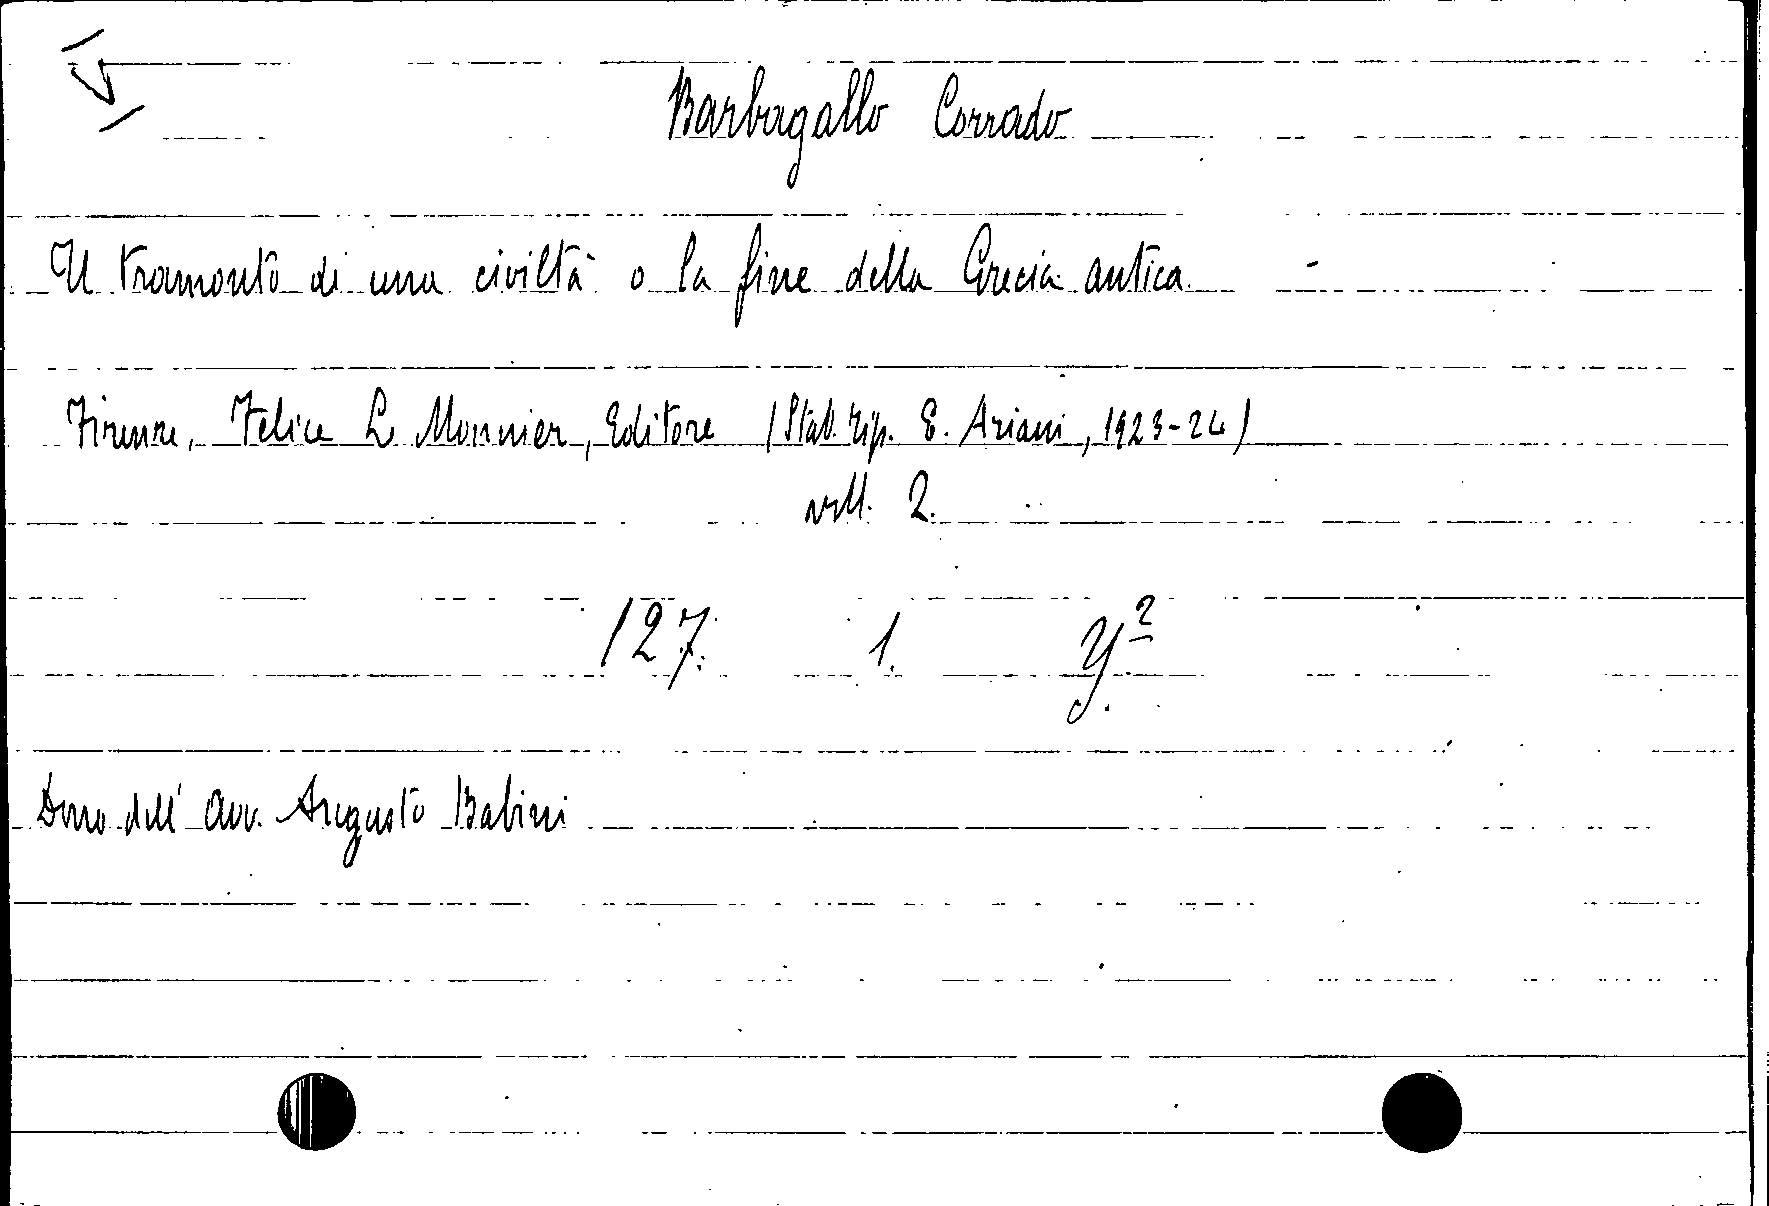 Barbagallo Corrado
Il tramonto di una civiltà o la fine della Grecia antica -
Firenze, Felice Le Monnier, Editore (Stab. tip. E. Ariani, 1923-24)
voll. 2.
127. 1. Y²
Dono dell' Avv. Augusto Babini